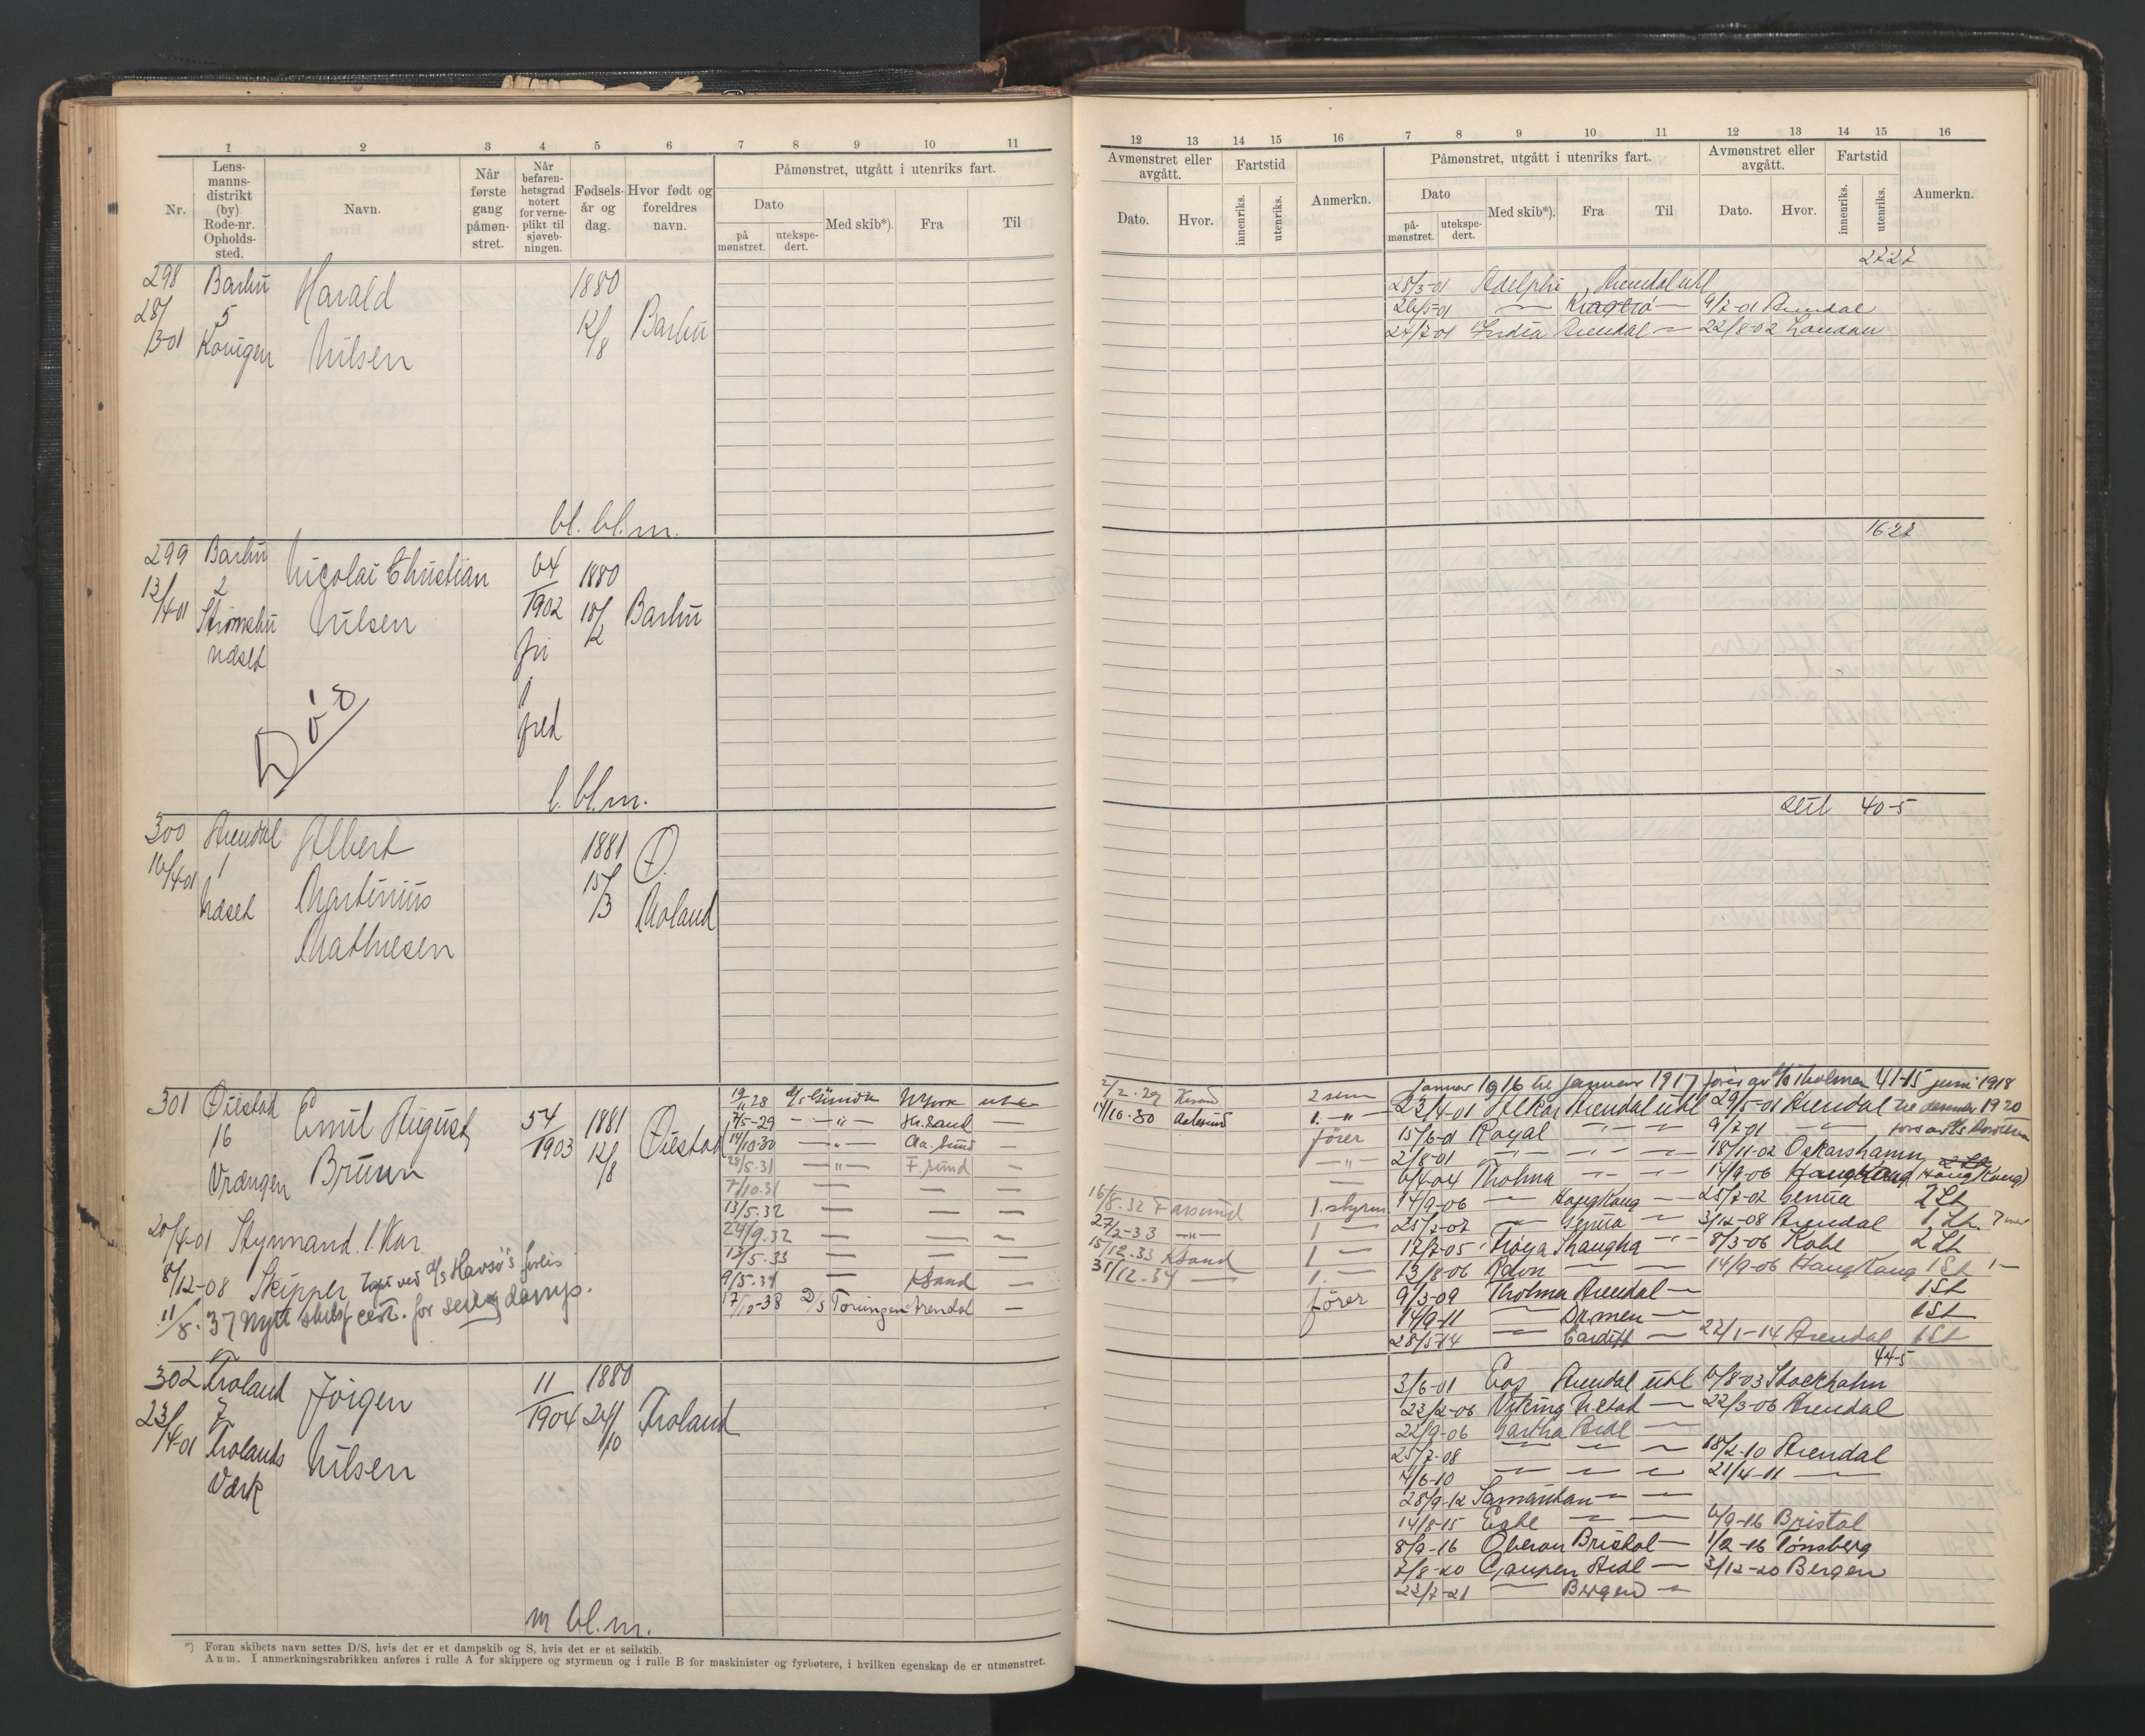 1 2 3 4 5 6 7 8 9 10 11
Nr.
Lens-
manns-
distrikt
(by)
Rode-nr.
Opholds-
sted.
Navn.
Når
første
gang
påmøn-
stret.
Når
befaren-
hetsgrad
notert
for verne-
plikt til
sjøveb-
ningen.
Fødsels-
år og
dag.
Hvor født og
foreldres
navn.
Påmønstret, utgått i utenriks fart.
Dato
på
mønstret.
utekspe-
dert.
Med skib*).
Fra
Til
298 Barbu Harald 1880
28/3-01 5 Nilsen 12/8 Barbu
bl. bl.m.
299 Barbu Nicolai Christian 64 1880
13/4-01 2 Nilsen 1902 18/12 Barbu
Udset
fri
i
fred
Død
l. bl.m.
300 Arendal Albert 1881 Ø.
16/4-01 1 Martinius 15/3 Moland
Udset Mathiesen
301 Øiestad Emil August 54 1881
16 Bruun 1903 12/8 Øiestad
Vrængen
7/5-29
14/10-30
28/5.31 F.sund
7/10.31
13/5.32
24/9.32
13/5.33
9/5.34 KSand
17/12-38 D/S Toringen Arendal
20/4-01 Styrmand. 1. Kar.
8/12-08 Skipper
11/8.37 Nytt cert. for seil og damp.
302 Froland Jörgen 11 1880
23/4-01 7 Nilsen 1904 24/10 Froland
Frolands
Værk
m bl.m.
*) Foran skibets navn settes D/S, hvis det er et dampskib og S, hvis det er et seilskib.
Anm. I anmerkningsrubrikken anføres i rulle A for skippere og styrmenn og i rulle B for maskinister og fyrbøtere, i hvilken egenskap de er utmønstret.
12 13 14 15 16 7 8 9 10 11 12 13 14 15 16
Avmønstret eller
avgått.
Dato.
Hvor.
Fartstid
innenriks.
utenriks.
Anmerkn.
Påmønstret, utgått i utenriks fart.
Dato
på-
mønstret.
utekspe-
dert.
Med skib*).
Fra
Til
Avmønstret eller
avgått.
Dato.
Hvor.
Fartstid
innenriks.
utenriks.
Anmerkn.
27-27
28/3-01 Adelphi Arendal utl
26/5-01 — Kragerø — 9/7-01 Arendal
27/7-01 India Arendal — 22/8-02 London
16-27
seil 40-5
januar 1916 til januar 1917 fører av Tholma 41-15 juni 1918
23/4-01 Alkor Arendal utl 29/5-01 Arendal
15/6-01 Royal 9/7-01
2/8-01 18/11-02 Oskarshamn
6/4-04 Tholma 14/9-06 HongKong
14/9-06 — HongKong — 25/7-07 Genua 2 St
25/7-07 — Genua — 3/12-08 Arendal 1 St.
17/7-05 Troya Shanghai 8/3-06 Kobe 2 St
13/8-06 14/9-06 HongKong 1 St
9/3-09 Tholma Arendal — 1 St
14/9-11 — Drmen — 1 St
28/5-14 — Cardiff — 22/1-14 Arendal 1 St
2/2.29 2 sem
14/10-30 Aalesund 1. —"—
fører
16/8.32 Farsund 1. styrm
27/2-33 —"— 1 —
15/12.33 KSand 1 —
31/12.34 — 1. —
fører
44-5
3/6-01 Eos Arendal utl 6/8-03 Stockholm
23/2-06 Viking — 22/3-06 Arendal
22/9-06 Gartha Ardl —
25/7-08 — — — 18/2-10 Arendal
4/6-10 — — — 21/4-11 —
28/9-12 Samaritan — —
14/8-15 — — 6/9-16 Bristol
8/9-16 Oberon Bristol — 1/2-16 Tønsberg
7/8-20 Gaupen Ardl — 3/12-20 Bergen
23/7-21 — Bergen —